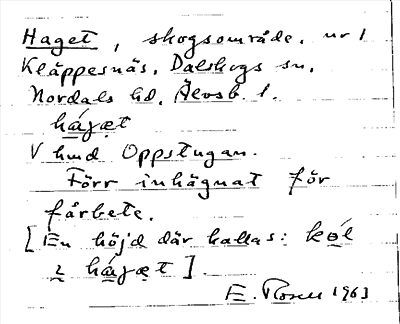 Haget, skogsområde. nr 1
Kläppesnäs, Dalskogs sn,
Nordals hd, Älvsb. l.
há̱ꞬƐt
V hmd Oppstugan.
Förr inhägnat för
fårbete.
[En höjd där kallas: kǿl
ɩ há̱gƐt].
E. Rosell 1963